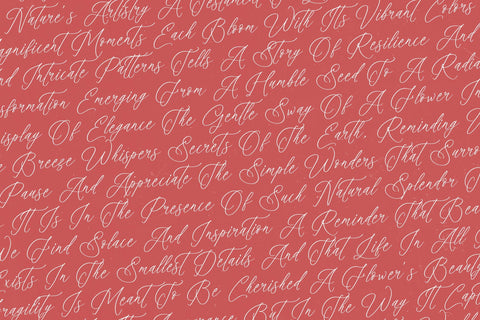 Nature's Artistry A Testament
Magnificent Moments Each Bloom With Its Vibrant Colors
And Intricate Patterns Tells A Story Of Resilience And
Emerging From A Humble Seed To A
Display Of Elegance The Gentle Sway Of A Flower In
Breeze Whispers Secrets Of The Earth, Reminding
Pause And Appreciate The Simple Wonders That
It Is In The Presence Of Such Natural Splendor
We Find Solace And Inspiration A Reminder That
Exists In The Smallest Details And That Life In All
Is Meant To Be Cherished A Flower's Beauty
But In The Way It